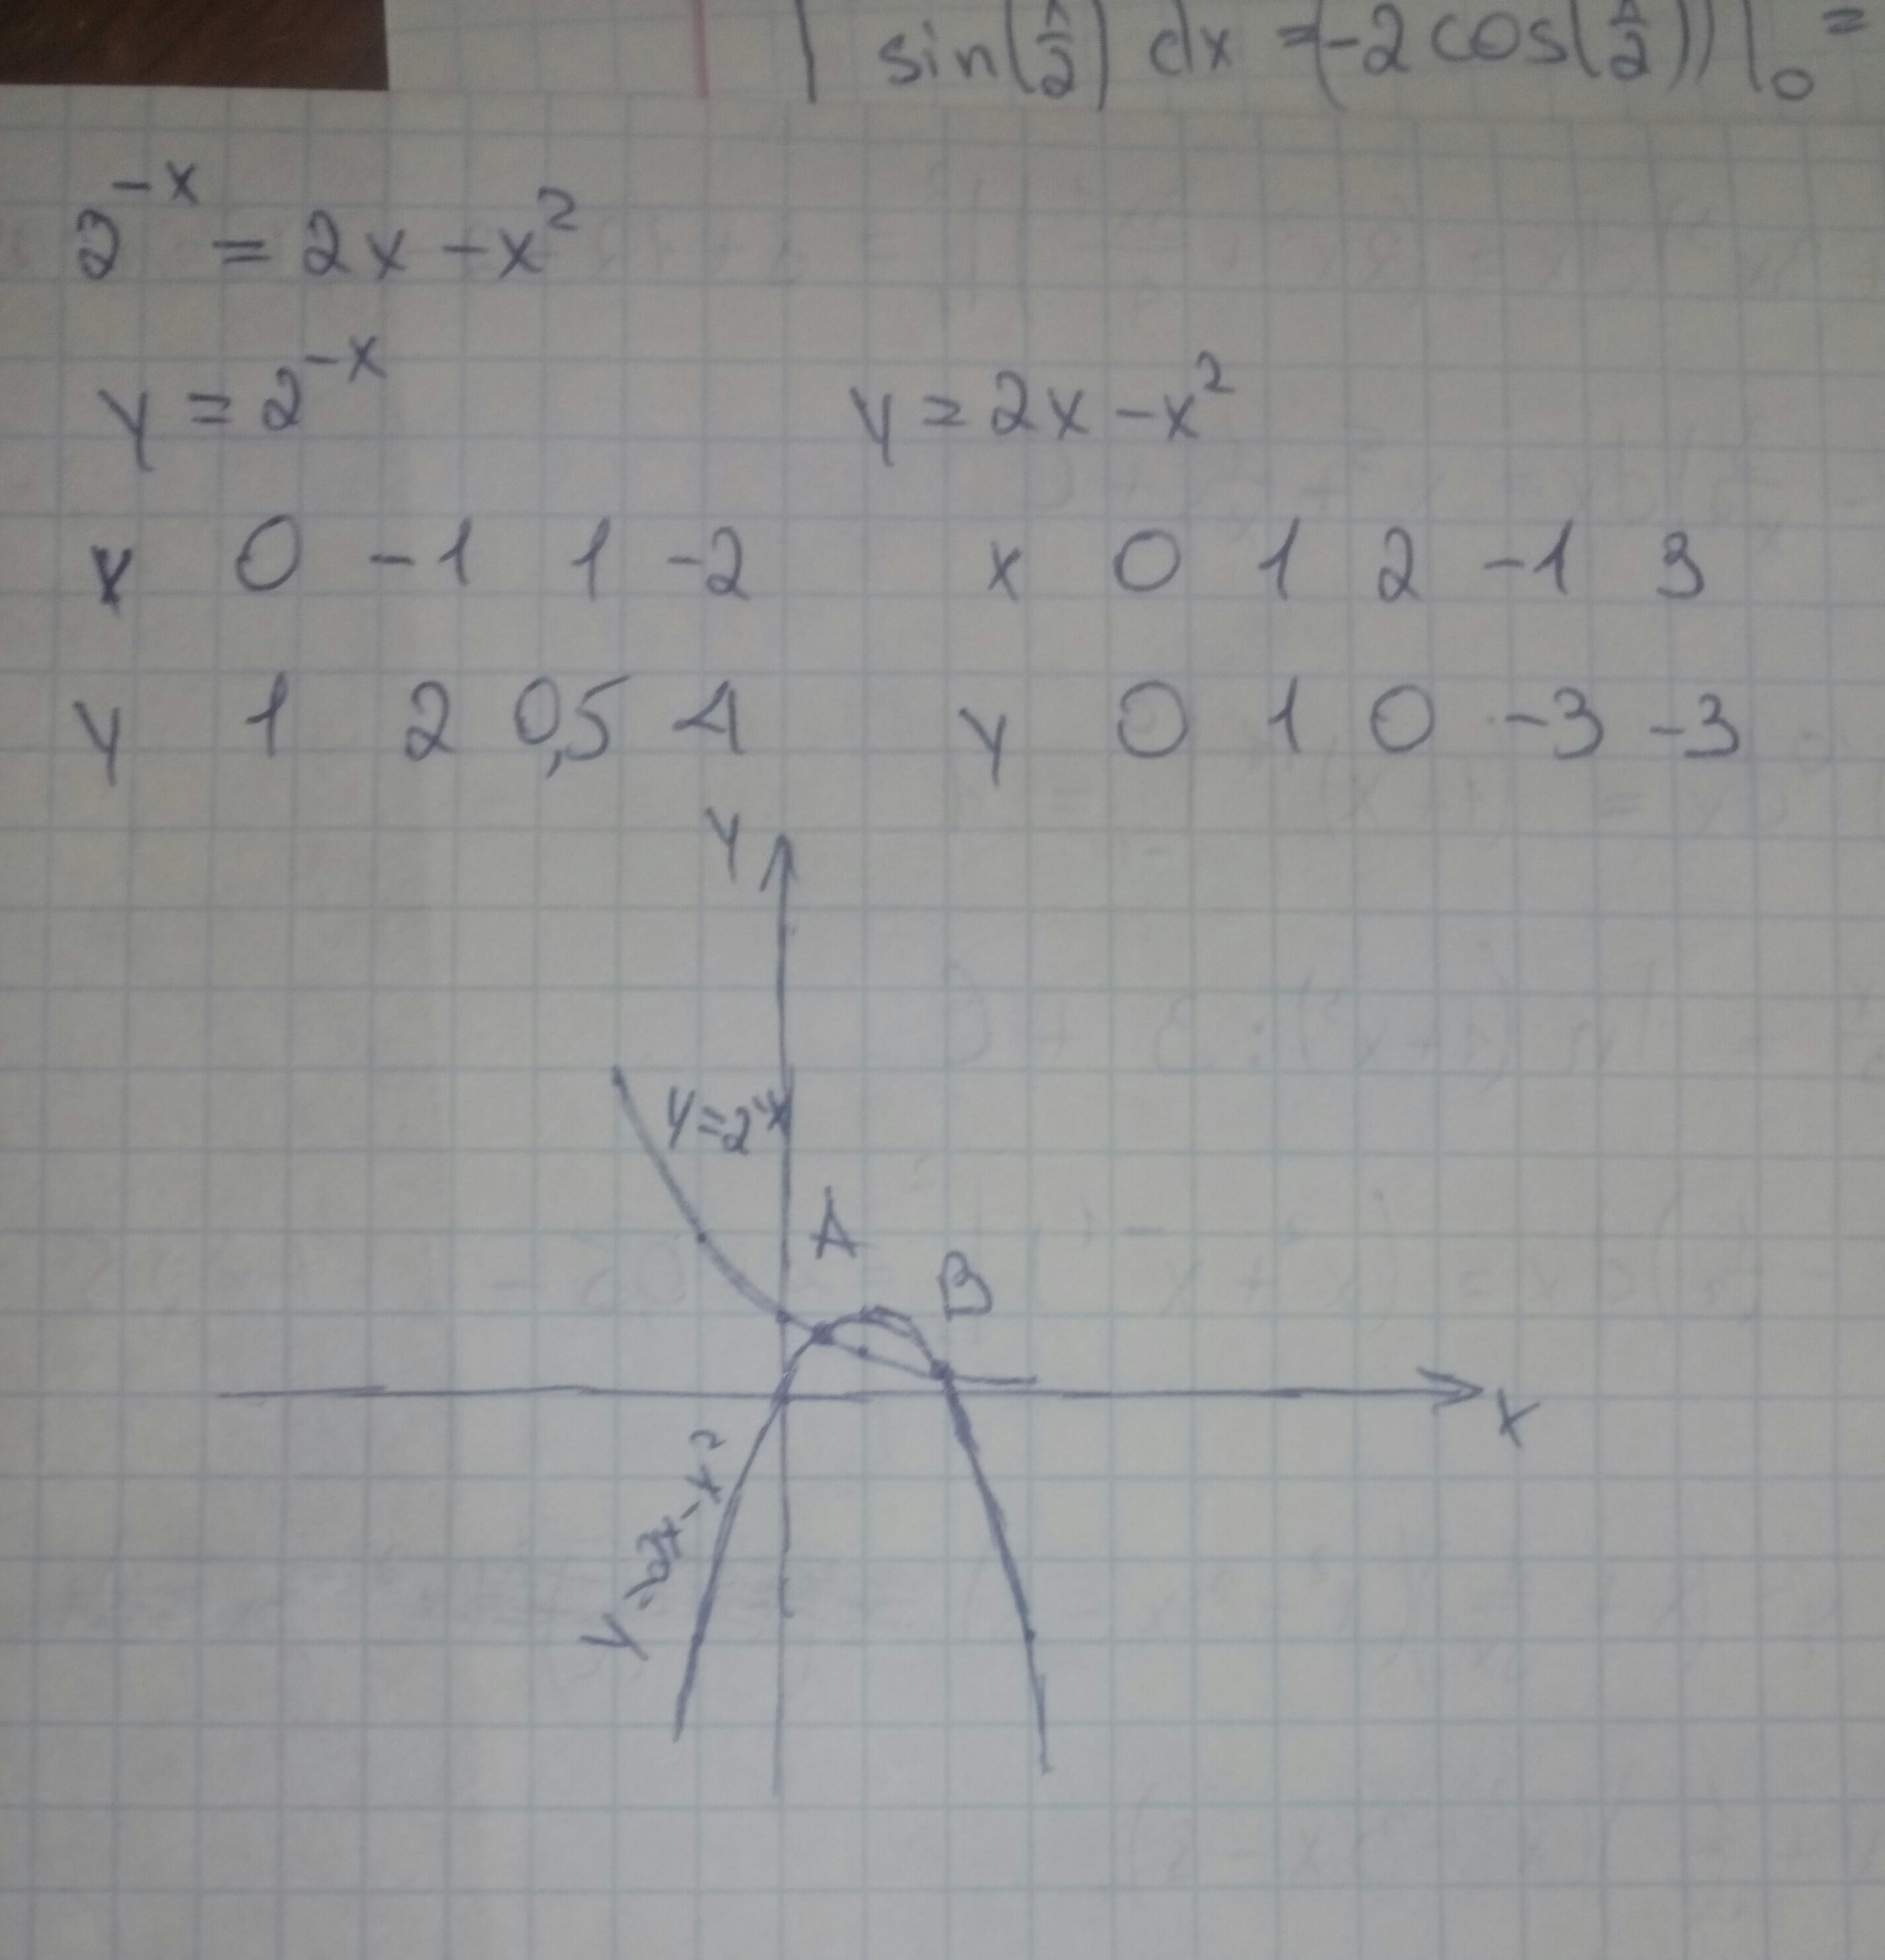 sin(x/2) dx = (-2 cos(x/2))|₀ =
2⁻ˣ = 2x - x²
y = 2⁻ˣ y = 2x - x²
x 0 -1 1 -2 x 0 1 2 -1 3
y 1 2 0,5 4 y 0 1 0 -3 -3
y
y=2⁻ˣ
A
B
x
y=2x-x²